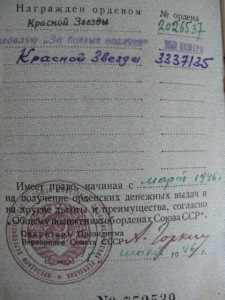 Награжден орденом № ордена
Красной Звезды 2026537
медалью „За боевые заслуги" без номера
Красной Звезды 3337135
Имеет право, начиная с март 1946 г.
на получение орденских денежных выдач и
на другие льготы и преимущества, согласно
„Общему положению об орденах Союза ССР".
Секретарь Президиума
Верховного Совета СССР А. Горкин
19 46
№